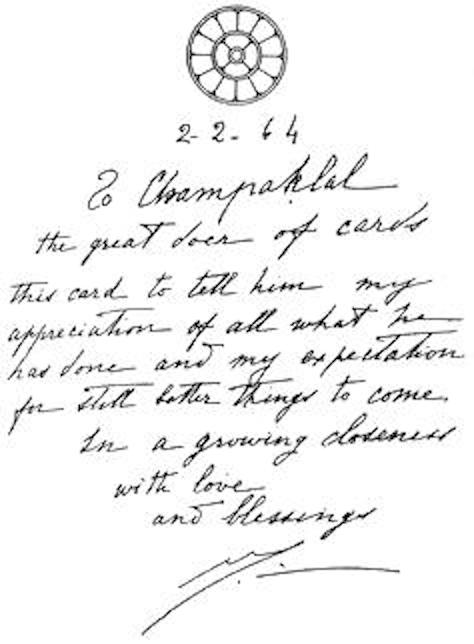 2-2-64
To Champaklal
the great doer of cards
this card to tell him my
appreciation of all what he
has done and my expectation
for still better things to come.
In a growing closeness
with love
and blessings